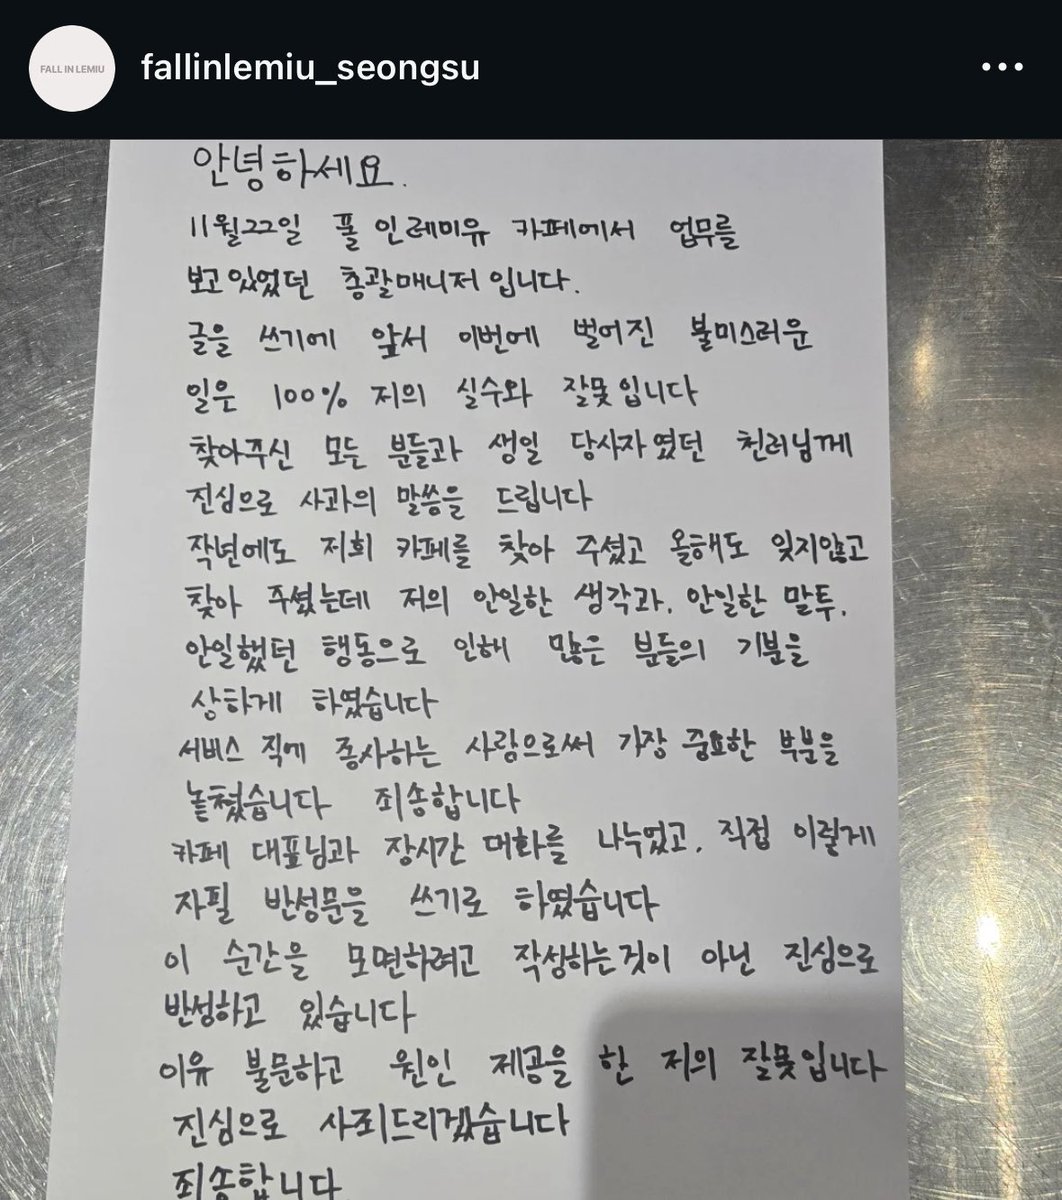 FALL IN LEMIU
fallinlemiu_seongsu
안녕하세요.
11월22일 폴 인레미유 카페에서 업무를
보고있었던 총괄매니저입니다.
글을 쓰기에 앞서 이번에 벌어진 불미스러운
일은 100% 저의 실수와 잘못입니다
찾아주신 모든 분들과 생일 당사자였던 천러님께
진심으로 사과의 말씀을 드립니다
작년에도 저희 카페를 찾아 주셨고 올해도 잊지않고
찾아 주셨는데 저의 안일한 생각과, 안일한 말투,
안일했던 행동으로 인해 많은 분들의 기분을
상하게 하였습니다
서비스 직에 종사하는 사람으로써 가장 중요한 부분을
놓쳤습니다 죄송합니다
카페 대표님과 장시간 대화를 나누었고, 직접 이렇게
자필 반성문을 쓰기로 하였습니다
이 순간을 모면하려고 작성하는것이 아닌 진심으로
반성하고 있습니다
이유 불문하고 원인 제공을 한 저의 잘못입니다
진심으로 사죄드리겠습니다
죄송합니다